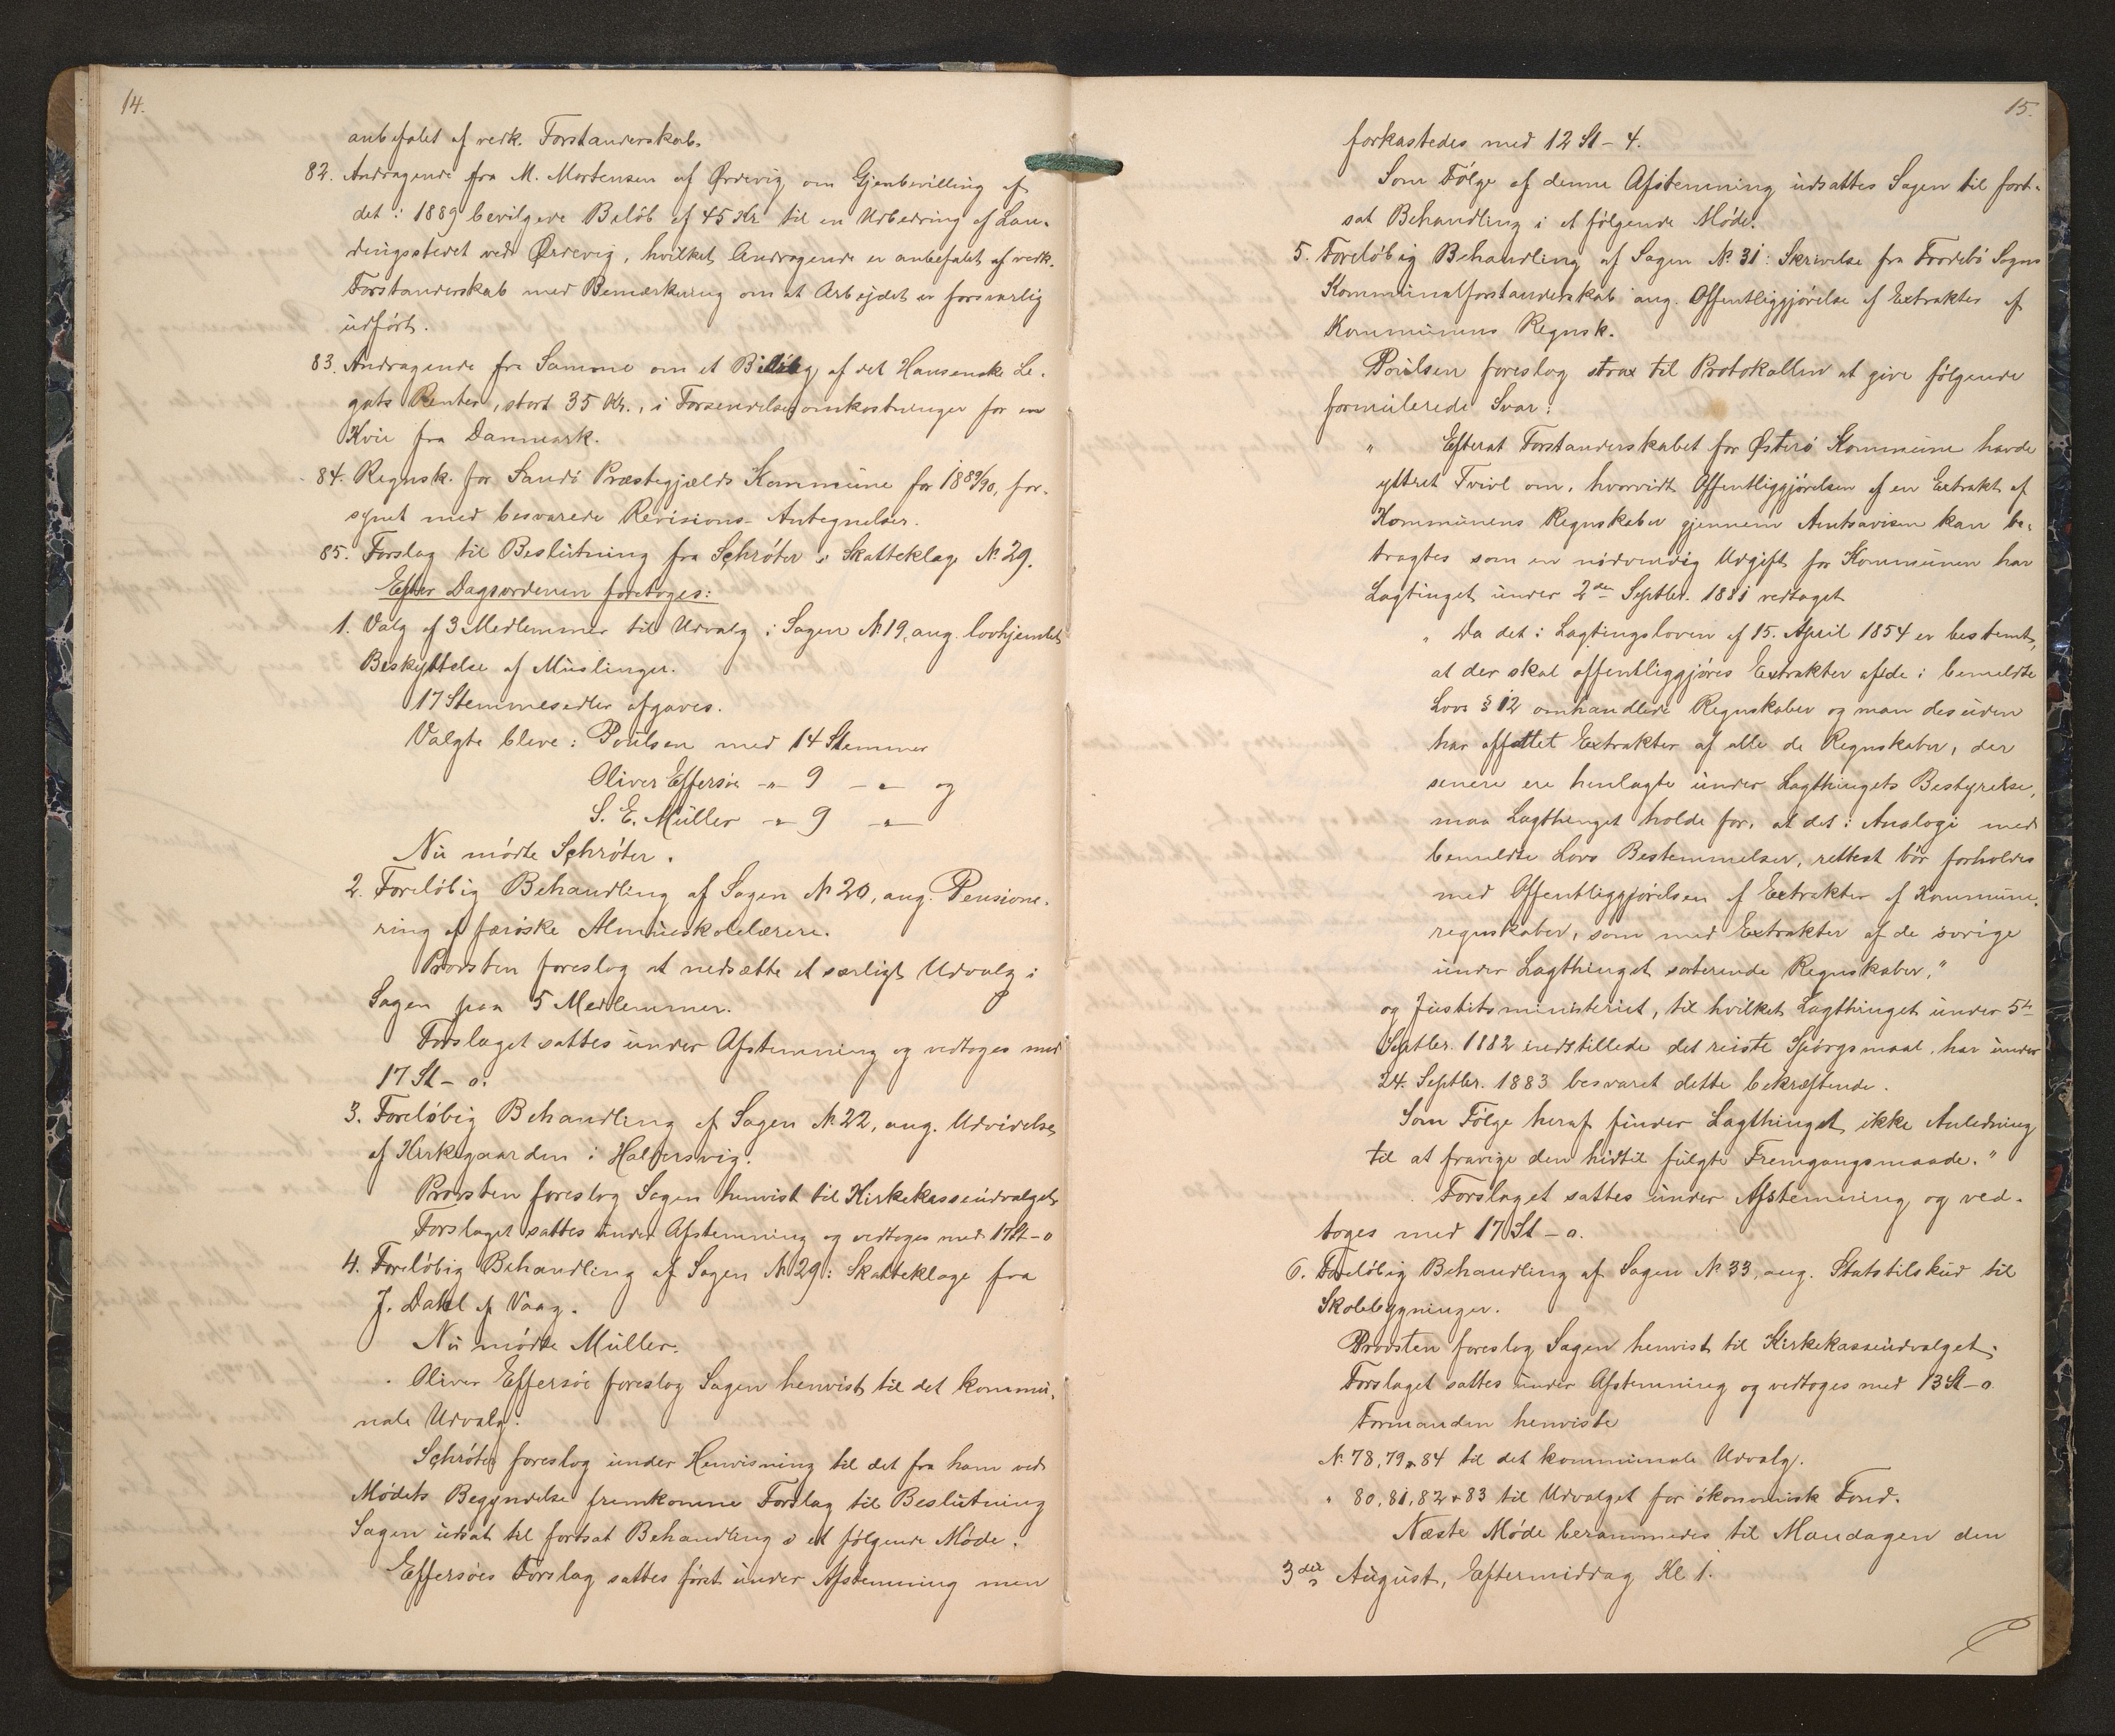 14.
anbefalet af vedk. Forstanderskab.
82. Andragende fra M. Mortensen af Ørdevig om Gjenbevilling af
det i 1889 bevilgede Beløb af 45 Kr. til en Udbedring af Lan-
dingsstedet ved Ørdevig, hvilket Andragende er anbefalet af vedk.
Forstanderskab med Bemærkning om at Arbejdet er forsvarlig
udført.
83. Andragende fra Samme om et Bidrag af det Hansenske Le-
gats Renter, stort 35 Kr., i Forsendelsesomkostninger for en
Kvie fra Danmark.
84. Regnsk. for Sandø Præstegjælds Kommune for 1889/90, for-
synet med besvarede Revisions-Antegnelser.
85. Forslag til Beslutning fra Schrøter i Skatteklage No. 29.
Efter Dagsordenen foretoges:
1. Valg af 3 Medlemmer til Udvalg i Sagen No. 19, ang. lovhjemlet
Beskyttelse af Muslinger.
17 Stemmesedler afgaves.
Valgte bleve: Poulsen med 14 Stemmer
Oliver Effersøe -"- 9 -"- og
S. E. Müller -"- 9 -"-
Nu mødte Schrøter.
2. Foreløbig Behandling af Sagen No. 20, ang. Pensione-
ring af færøske Almueskolelærere.
Provsten foreslog at nedsætte et særligt Udvalg i
Sagen paa 5 Medlemmer.
Forslaget sattes under Afstemning og vedtoges med
17 St - 0.
3. Foreløbig Behandling af Sagen No. 22, ang. Udvidelse
af Kirkegaarden i Haldersvig.
Provsten foreslog Sagen henvist til Kirkekasseudvalget
Forslaget sattes under Afstemning og vedtoges med 17 St - 0
4. Foreløbig Behandling af Sagen No. 29: Skatteklage fra
J. Dahl af Vaag.
Nu mødte Müller.
Oliver Effersøe foreslog Sagen henvist til det kommu-
nale Udvalg.
Schrøter foreslog under Henvisning til det fra ham ved
Mødets Begyndelse fremkomne Forslag til Beslutning
Sagen udsat til fortsat Behandling i et følgende Møde.
Effersøes Forslag sattes først under Afstemning men
15.
forkastedes med 12 St - 4.
Som Følge af denne Afstemning udsattes Sagen til fort-
sat Behandling i et følgende Møde.
5. Foreløbig Behandling af Sagen No. 31: Skrivelse fra Fordebø Sogns
Kommunalforstanderskab ang. Offentliggjørelse af Extrakter af
Kommunens Regnsk.
Poulsen foreslog strax til Protokollen at give følgende
formulerede Svar:
" Efterat Forstanderskabet for Østerø Kommune havde
yttret Tvivl om, hvorvidt Offentliggjørelsen af en Extrakt af
Kommunens Regnskaber gjennem Amtsavisen kan be-
tragtes som en nødvendig Udgift for Kommunen har
Lagtinget under 2den Septbr. 1881 vedtaget
" Da det i Lagtingsloven af 15. April 1854 er bestemt,
at der skal offentliggjøres Extrakter af de i bemeldte
Lovs § 12 omhandlede Regnskaber og man desuden
har affattet Extrakter af alle de Regnskaber, der
senere ere henlagte under Lagthingets Bestyrelse,
maa Lagthinget holde for, at det i Analogi med
bemeldte Lovs Bestemmelser, rettest bør forholdes
med Offentliggjørelsen af Extrakter af Kommune-
regnskaber, som med Extrakter af de øvrige
under Lagthinget sorterende Regnskaber,"
og Justitsministeriet, til hvilket Lagthinget under 5te
Septbr. 1882 indstillede det reiste Spørgsmaal, har under
24. Septbr. 1883 besvaret dette bekræftende.
Som Følge heraf finder Lagthinget ikke Anledning
til at fravige den hidtil fulgte Fremgangsmaade."
Forslaget sattes under Afstemning og ved-
toges med 17 St - 0.
6. Foreløbig Behandling af Sagen No. 33, ang. Statstilskud til
Skolebygninger.
Provsten foreslog Sagen henvist til Kirkekasseudvalget.
Forslaget sattes under Afstemning og vedtoges med 13 St - 0
Formanden henviste
No. 78, 79 & 84 til det kommunale Udvalg.
" 80, 81, 82 & 83 til Udvalget for økonomisk Fond.
Næste Møde berammedes til Mandagen den
3die August, Eftermiddag Kl 1.